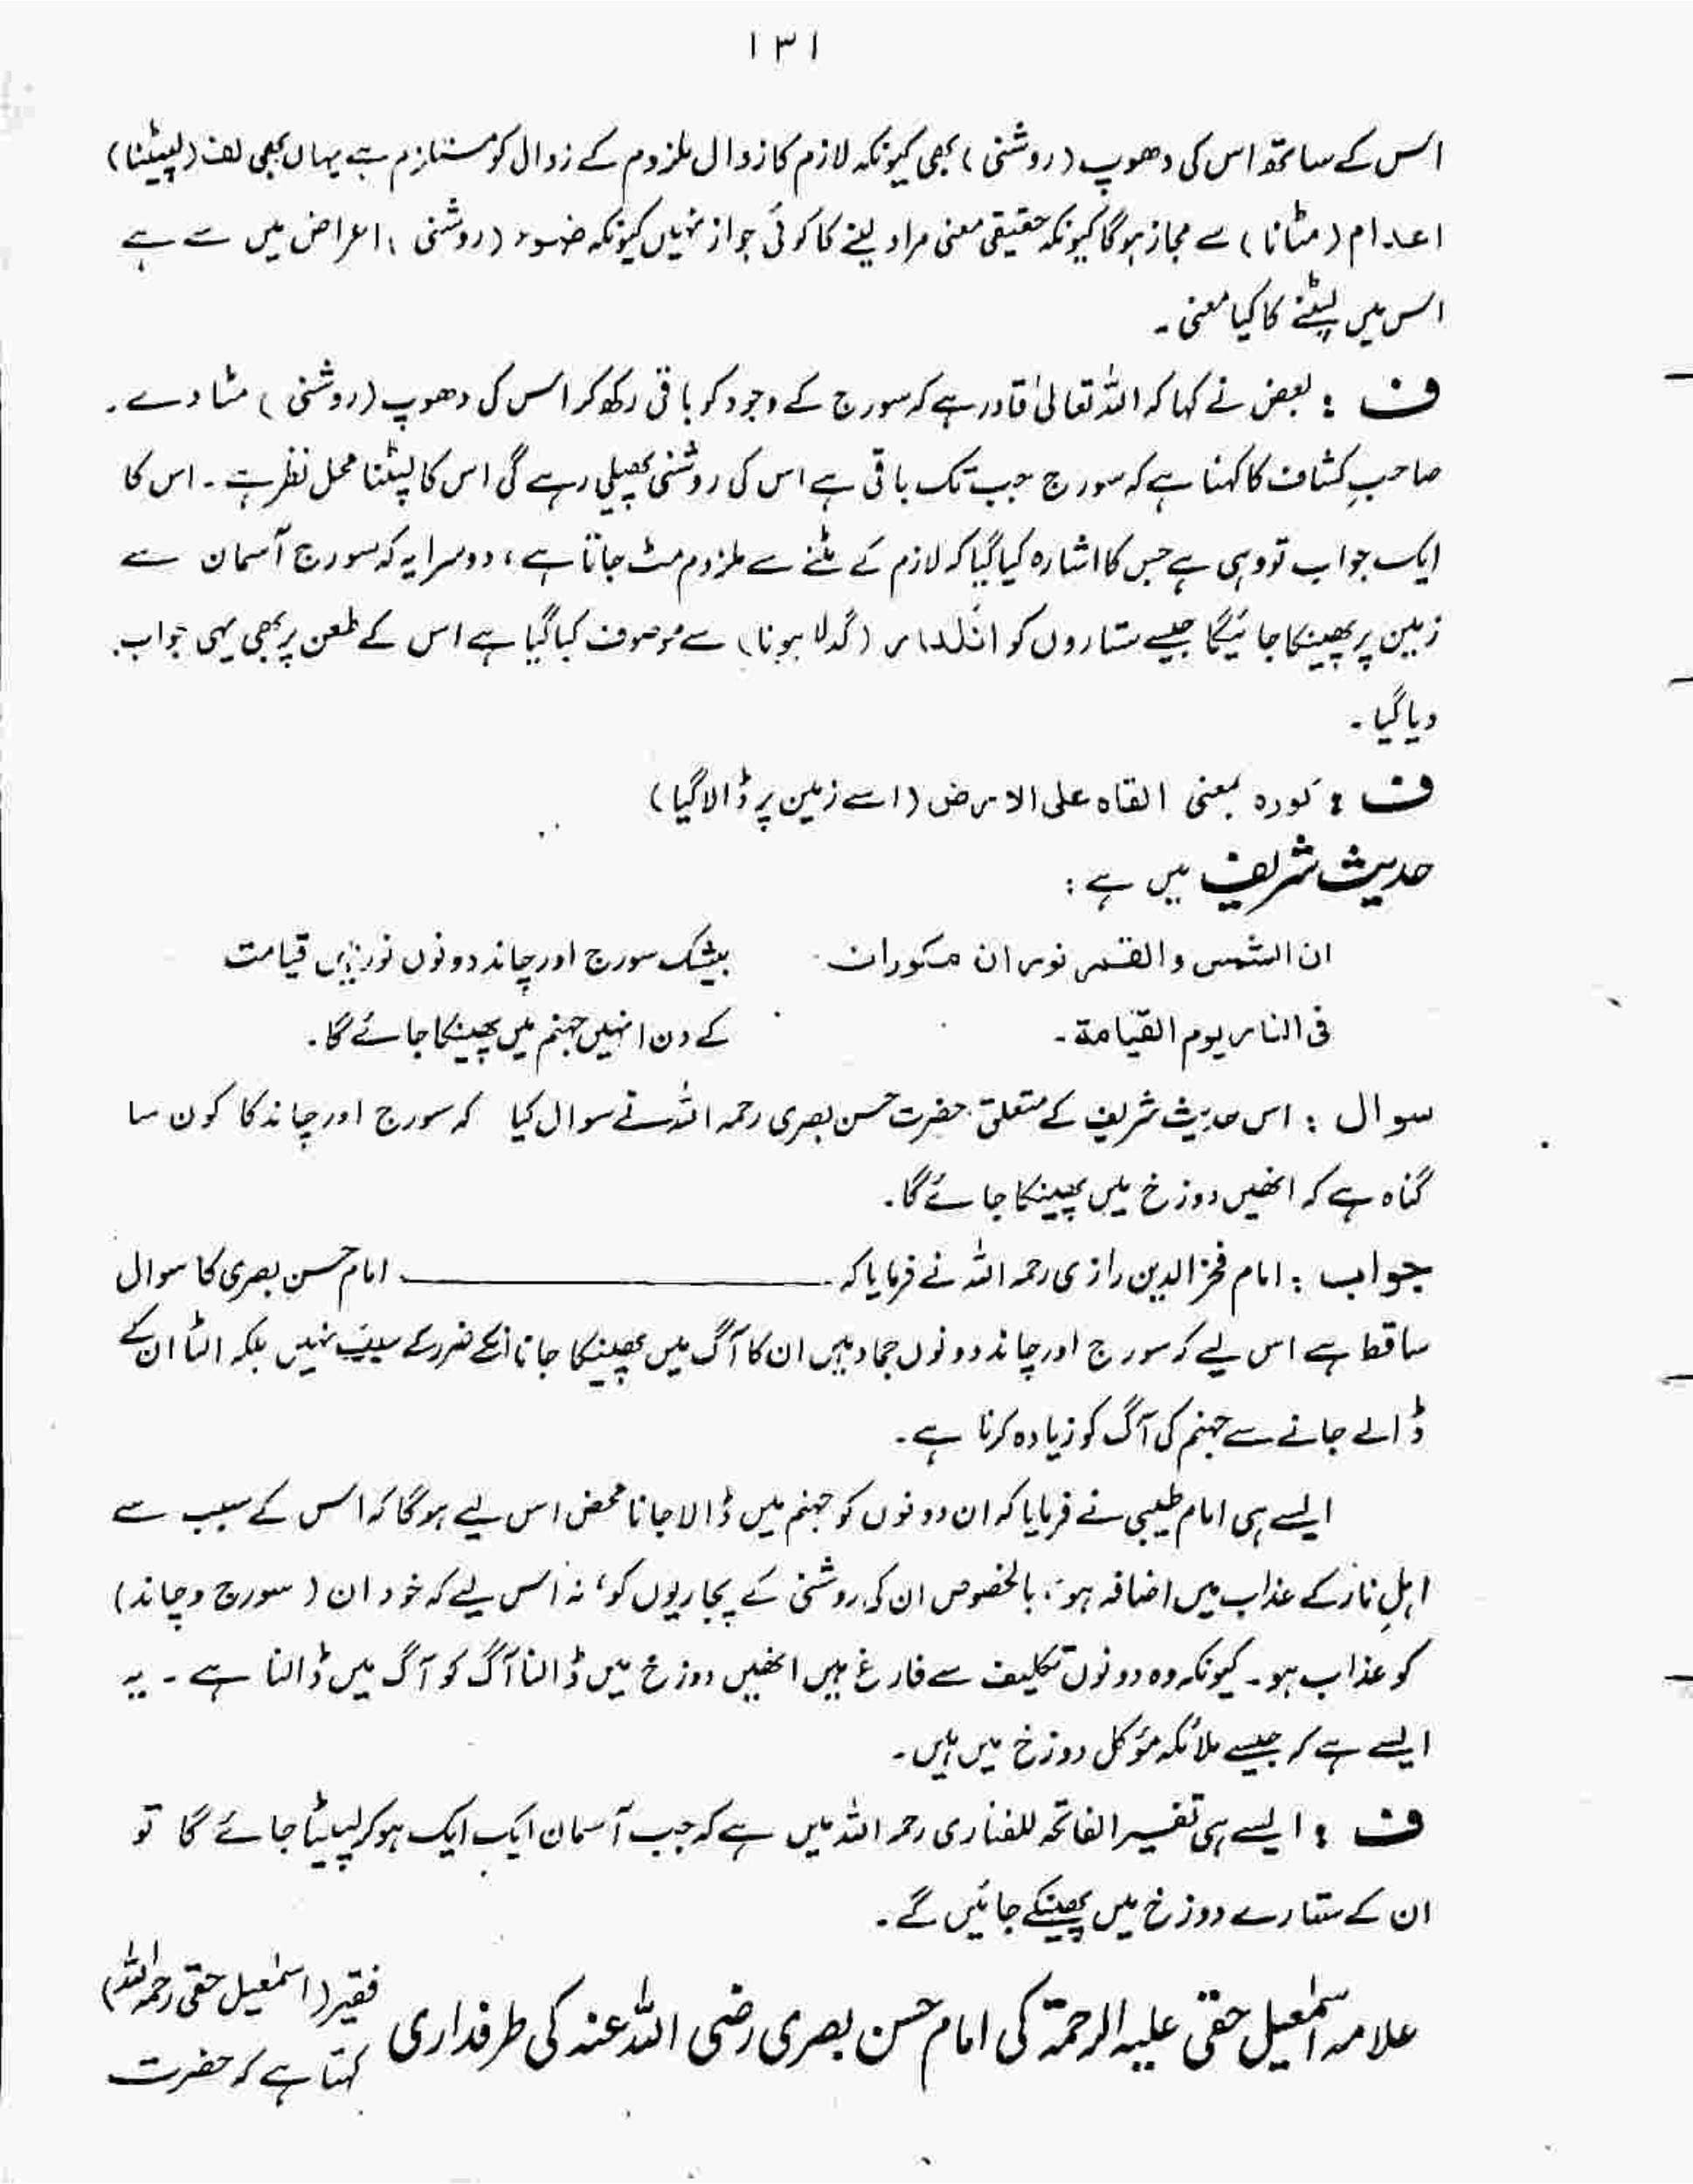 ۱۳۱
اس کے ساتھ اس کی دھوپ (روشنی) بھی کیونکہ لازم کا زوال ملزوم کے زوال کو مستلزم ہے یہاں بھی لف (لپیٹنا)
اعدام (مٹانا) سے مجاز ہوگا کیونکہ حقیقی معنی مراد لینے کا کوئی جواز نہیں کیونکہ ضوء (روشنی) اعراض میں سے ہے
اس میں لپٹنے کا کیا معنی۔
ف : بعض نے کہا کہ اللہ تعالیٰ قادر ہے کہ سورج کے وجود کو باقی رکھ کر اس کی دھوپ (روشنی) مٹا دے۔
صاحبِ کشاف کا کہنا ہے کہ سورج جب تک باقی ہے اس کی روشنی پھیلی رہے گی اس کا لپٹنا محل نظر ہے۔ اس کا
ایک جواب تو وہی ہے جس کا اشارہ کیا گیا کہ لازم کے مٹنے سے ملزوم مٹ جاتا ہے، دوسرا یہ کہ سورج آسمان سے
زمین پر پھینکا جائیگا جیسے ستاروں کو انکدار (گدلا ہونا) سے موصوف کیا گیا ہے اس کے طعن پر بھی یہی جواب
دیا گیا۔
ف : کورہ بمعنی القاہ علی الارض (اسے زمین پر ڈالا گیا)
حدیث شریف میں ہے :
ان الشمس والقمر نوران مکوران بیشک سورج اور چاند دونوں نور ہیں قیامت
فی النار یوم القیامة۔ کے دن انہیں جہنم میں پھینکا جائے گا۔
سوال : اس حدیث شریف کے متعلق حضرت حسن بصری رحمہ اللہ نے سوال کیا کہ سورج اور چاند کا کون سا
گناہ ہے کہ انھیں دوزخ میں پھینکا جائے گا۔
جواب : امام فخر الدین رازی رحمہ اللہ نے فرمایا کہ ـــــــــــــــ امام حسن بصری کا سوال
ساقط ہے اس لیے کہ سورج اور چاند دونوں جماد ہیں ان کا آگ میں پھینکا جانا انکے ضرر کے سبب نہیں بلکہ الٹا ان کے
ڈالے جانے سے جہنم کی آگ کو زیادہ کرنا ہے۔
ایسے ہی امام طیبی نے فرمایا کہ ان دونوں کو جہنم میں ڈالا جانا محض اس لیے ہوگا کہ اس کے سبب سے
اہلِ نار کے عذاب میں اضافہ ہو، بالخصوص ان کی روشنی کے پجاریوں کو، نہ اس لیے کہ خود ان (سورج و چاند)
کو عذاب ہو۔ کیونکہ وہ دونوں تکلیف سے فارغ ہیں انھیں دوزخ میں ڈالنا آگ کو آگ میں ڈالنا ہے۔ یہ
ایسے ہے کہ جیسے ملائکہ مؤکل دوزخ میں ہیں۔
ف : ایسے ہی تفسیر الفاتحہ للفناری رحمہ اللہ میں ہے کہ جب آسمان ایک ایک ہو کر لپیٹا جائے گا تو
ان کے ستارے دوزخ میں پھینکے جائیں گے۔
علامہ اسمٰعیل حقی علیہ الرحمۃ کی امام حسن بصری رضی اللہ عنہ کی طرفداری فقیر (اسمٰعیل حقی رحمہ اللہ)
کہتا ہے کہ حضرت